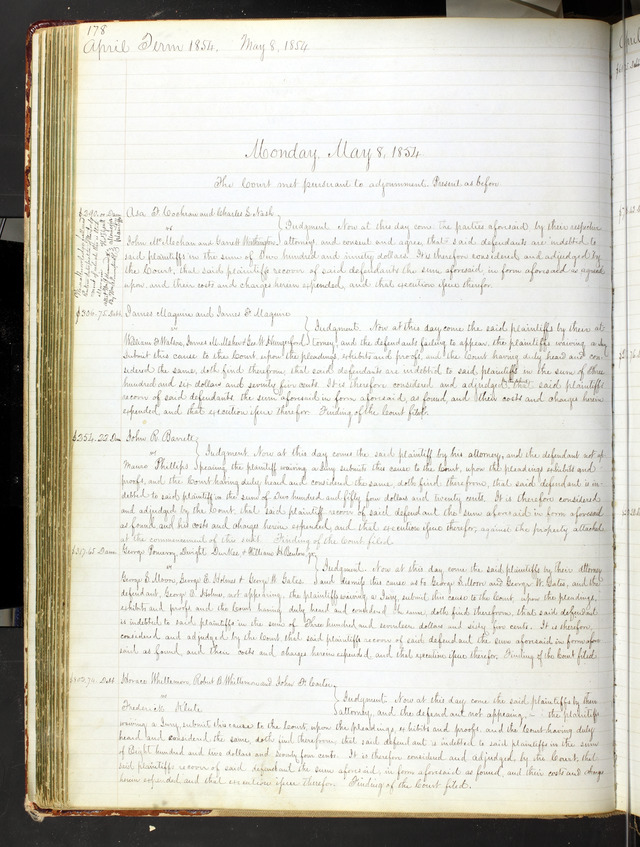 178
April Term 1854. May 8, 1854
Monday, May 8, 1854
The Court met pursuant to adjournment. Present as before
$290.00 Dam Asa F. Cochran and Charles G. Nash
vs } Judgment. Now at this day come the parties aforesaid by their respective
John McMechan and Garrett Worthington attorneys and consent and agree that said defendants are indebted to
said plaintiffs in the sum of Two hundred and ninety dollars. It is therefore considered and adjudged by
the Court, that said plaintiffs recover of said defendants the sum aforesaid in form aforesaid as agreed
upon, and their costs and charges herein expended, and that execution issue therefor.
$306.75 Debt James Maguire and James F. Maguire
vs } Judgment. Now at this day come the said plaintiffs by their at
William F. Watson, James M. & Geo. W. Hungerford torney, and the defendants failing to appear, the plaintiffs waiving a Jury
submit this cause to the Court upon the pleadings, exhibits and proofs, and the Court having duly heard and con
sidered the same, doth find therefrom, that said defendants are indebted to said plaintiffs in the sum of three
hundred and six dollars and seventy five cents. It is therefore considered and adjudged that said plaintiffs
recover of said defendants the sum aforesaid in form aforesaid, as found, and their costs and charges herein
expended, and that execution issue therefor. Finding of the Court filed.
$254.22 Dam John R. Barrett
vs } Judgment. Now at this day comes the said plaintiff by his attorney, and the defendant not ap
Phillips pearing the plaintiff waiving a Jury submits this cause to the Court, upon the pleadings exhibits and
proofs, and the Court having duly heard and considered the same, doth find therefrom, that said defendant is in
debted to said plaintiff in the sum of Two hundred and fifty four dollars and twenty cents. It is therefore considered
and adjudged by the Court that said plaintiff recover of said defendant the sum aforesaid in form aforesaid
as found and his costs and charges herein expended, and that execution issue therefor, against the property attached
at the commencement of this suit. Finding of the Court filed.
$317.65 Dam George Pomeroy, Dwight Durkee & William H. Benton, Jr.
vs } Judgment. Now at this day come the said plaintiffs by their attorney
George S. Moon, George C. Holmes & George W. Gates. and dismiss this cause as to George S. Moon and George W. Gates, and the
defendant, George C. Holmes, not appearing, the plaintiffs waiving a Jury, submit this cause to the Court upon the pleadings,
exhibits and proofs and the Court having duly heard and considered the same, doth find therefrom, that said defendant
is indebted to said plaintiffs in the sum of Three hundred and seventeen dollars and sixty five cents. It is therefore
considered and adjudged by the Court that said plaintiffs recover of said defendant the sum aforesaid in form afore
said as found, and their costs and charges herein expended and that execution issue therefor. Finding of the Court filed.
Debt Horace Whittemore, Robert B. Whittemore and John F. Carter
vs } Judgment. Now at this day come the said plaintiffs by their
Frederick attorney, and the defendant not appearing, the plaintiffs
waiving a Jury, submit this cause to the Court, upon the pleadings, exhibits and proofs, and the Court having duly
heard and considered the same, doth find therefrom, that said defendant is indebted to said plaintiffs in the sum
of Eight hundred and two dollars and seventy four cents. It is therefore considered and adjudged by the Court, that
said plaintiffs recover of said defendant the sum aforesaid, in form aforesaid as found, and their costs and charges
herein expended and that execution issue therefor. Finding of the Court filed.